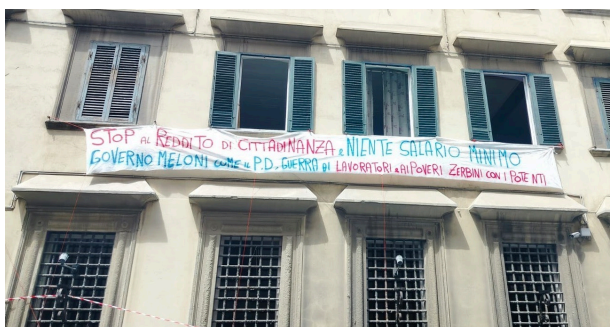 STOP AL REDDITO DI CITTADINANZA E NIENTE SALARIO MINIMO
GOVERNO MELONI COME IL P.D. GUERRA AI LAVORATORI E AI POVERI ZERBINI CON I POTENTI